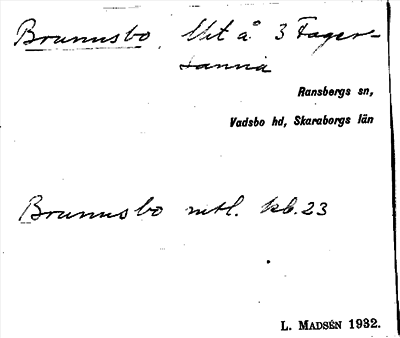 Brunnsbo, Ut å 3 Fager-
sanna
Ransbergs sn,
Vadsbo hd, Skaraborgs län
Brunnsbo mtl. kb. 23
L. MADSÉN 1932.